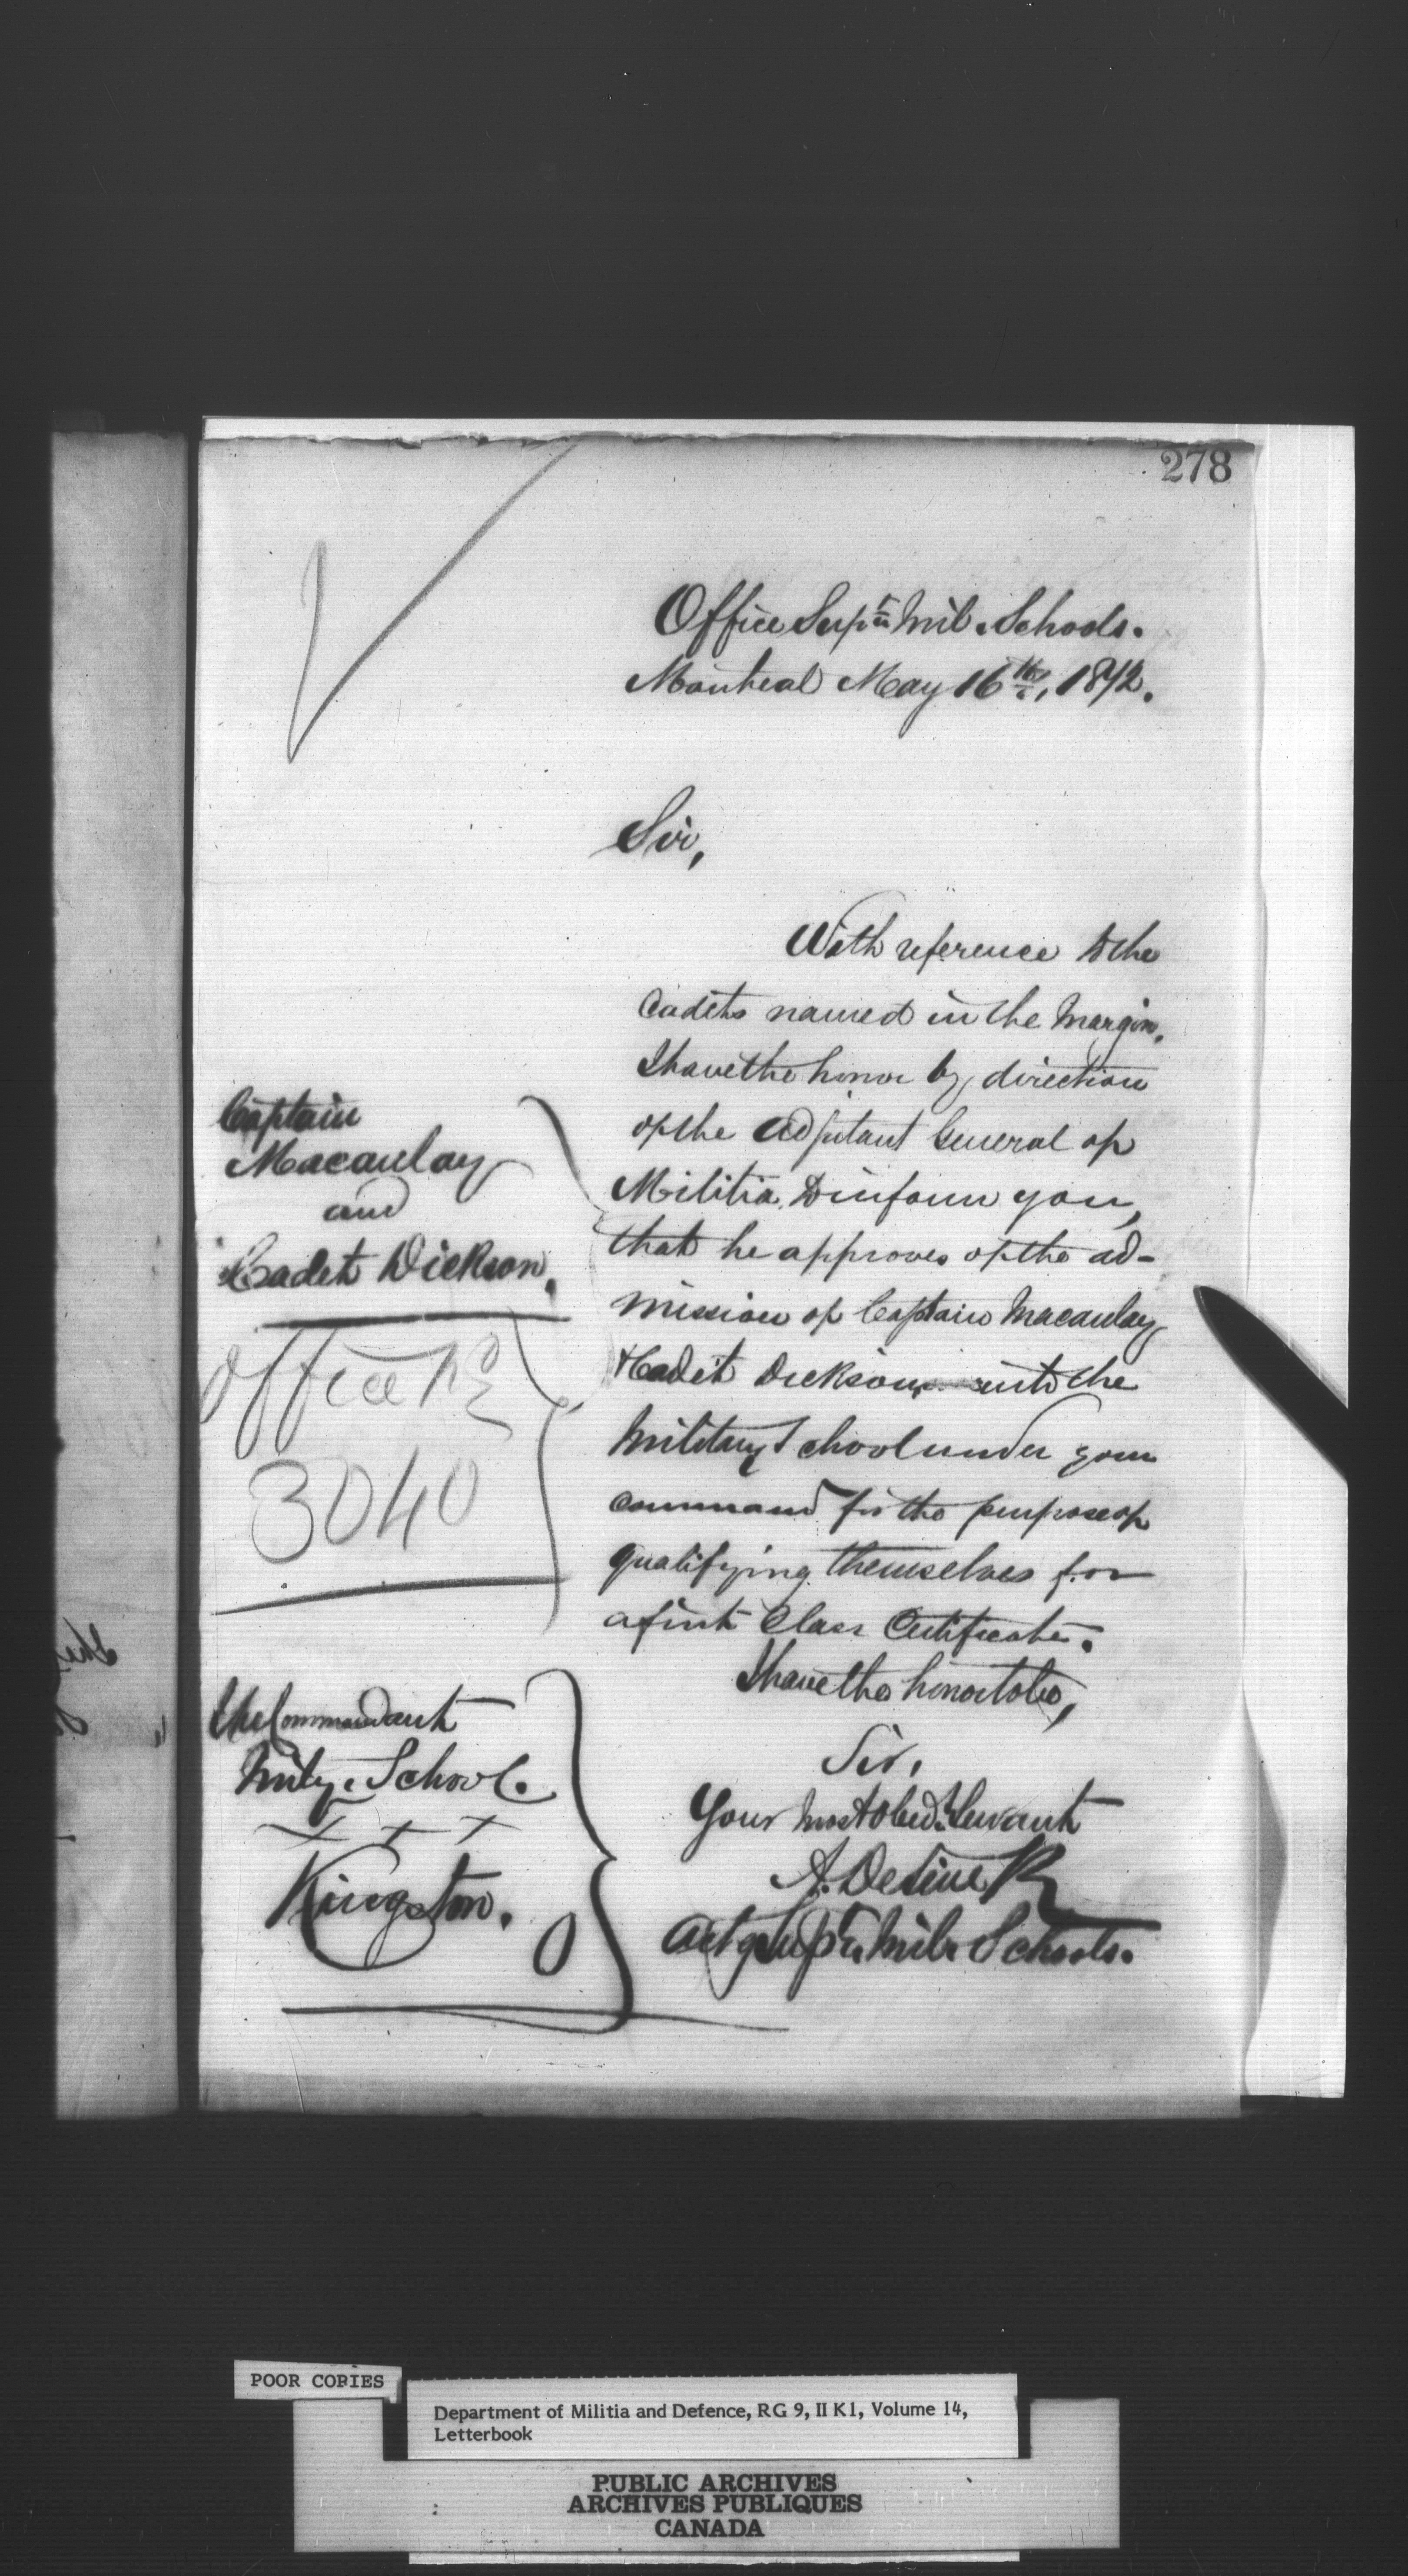 278
Office Supt Mil. Schools.
Montreal May 16th, 1872.
Sir,
With reference to the
Cadets named in the Margin,
I have the honor by direction
of the Adjutant General of
Militia, to inform you,
that he approves of the ad-
mission of Captain Macaulay
& Cadet Dickson, into the
Military School under your
command for the purpose of
qualifying themselves for
a first Class Certificate.
I have the honor to be,
Sir,
Your most obedt Servant
Actg Supt Mil. Schools.
Captain
Macaulay
and
Cadet Dickson.
Office
3040
The Commandant
Mily. School.
x x x
Kingston.
POOR COPIES
Department of Militia and Defence, RG 9, II K1, Volume 14,
Letterbook
PUBLIC ARCHIVES
ARCHIVES PUBLIQUES
CANADA